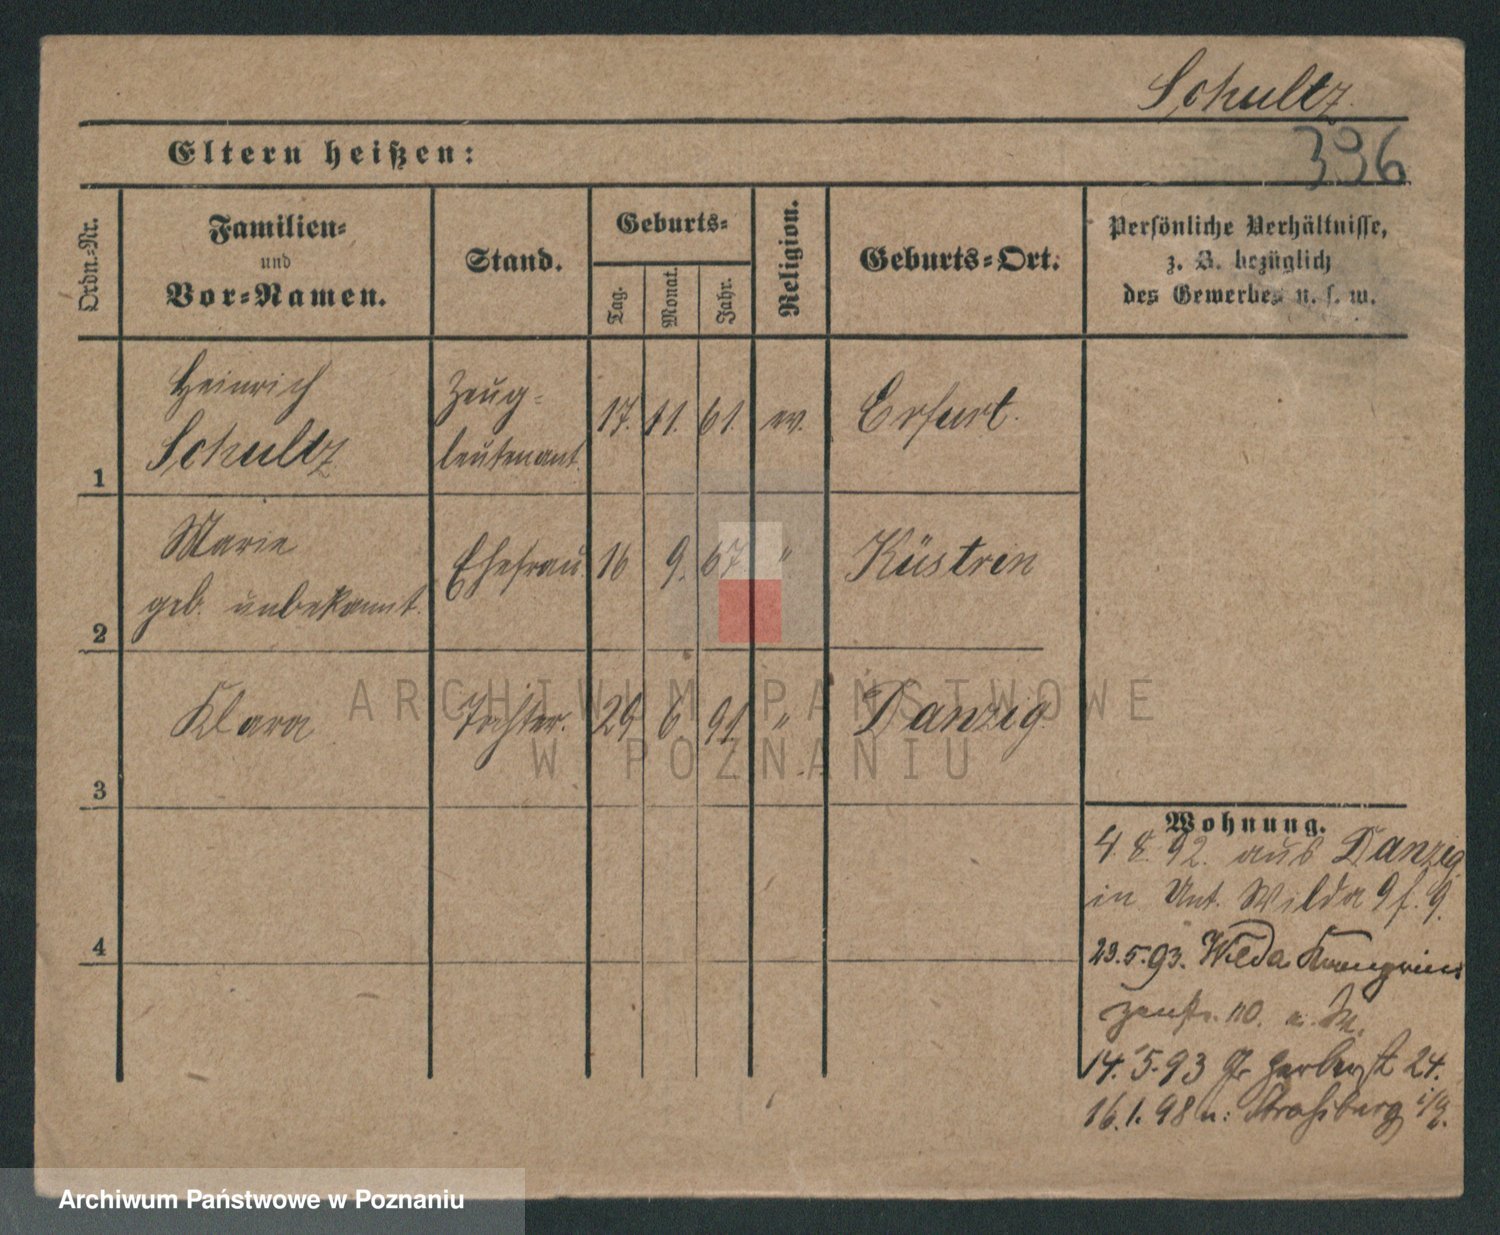 Schultz.
396
Eltern heißen:
Ordn.-Nr.
Familien-
und
Vor-Namen.
Stand.
Geburts-
Tag.
Monat.
Jahr.
Religion.
Geburts-Ort.
Persönliche Verhältnisse,
z. B. bezüglich
des Gewerbes u. s. w.
1
Heinrich
Schultz
Zeug-
leutenant
17. 11. 61. ev. Erfurt.
2
Marie
geb. unbekannt.
Ehefrau 16 9. 67 " Küstrin
3
Klara Tochter. 29 6. 91 " Danzig.
4
Wohnung.
4. 8. 92. aus Danzig
in Unt. Wilda 9 f. 9.
23.5.93. Wilda Kronprin
zenstr. 110.
14.5.93 Gr Gerberst 24.
16.1.98 n: Straßburg
ARCHIWUM PAŃSTWOWE
W POZNANIU
Archiwum Państwowe w Poznaniu